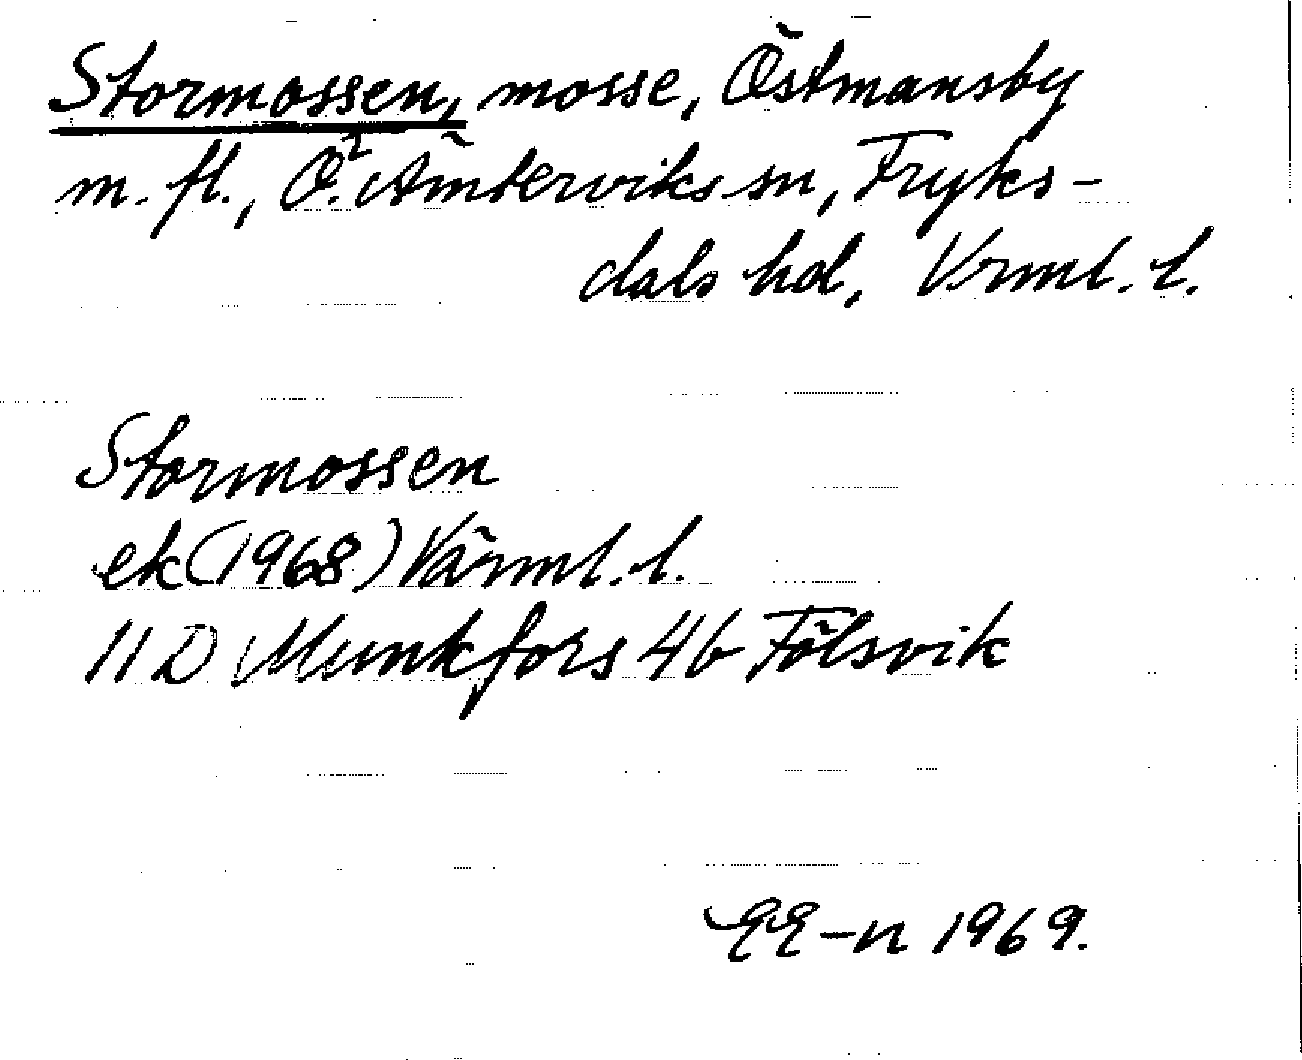 Stormossen, mosse, Östmansby
m. fl., Ö. Ämterviks sn, Fryks-
dals hd, Vrml. l.
Stormossen
ek (1968) Värml. l.
11 D Munkfors 4b Fölsvik
EE-n 1969.